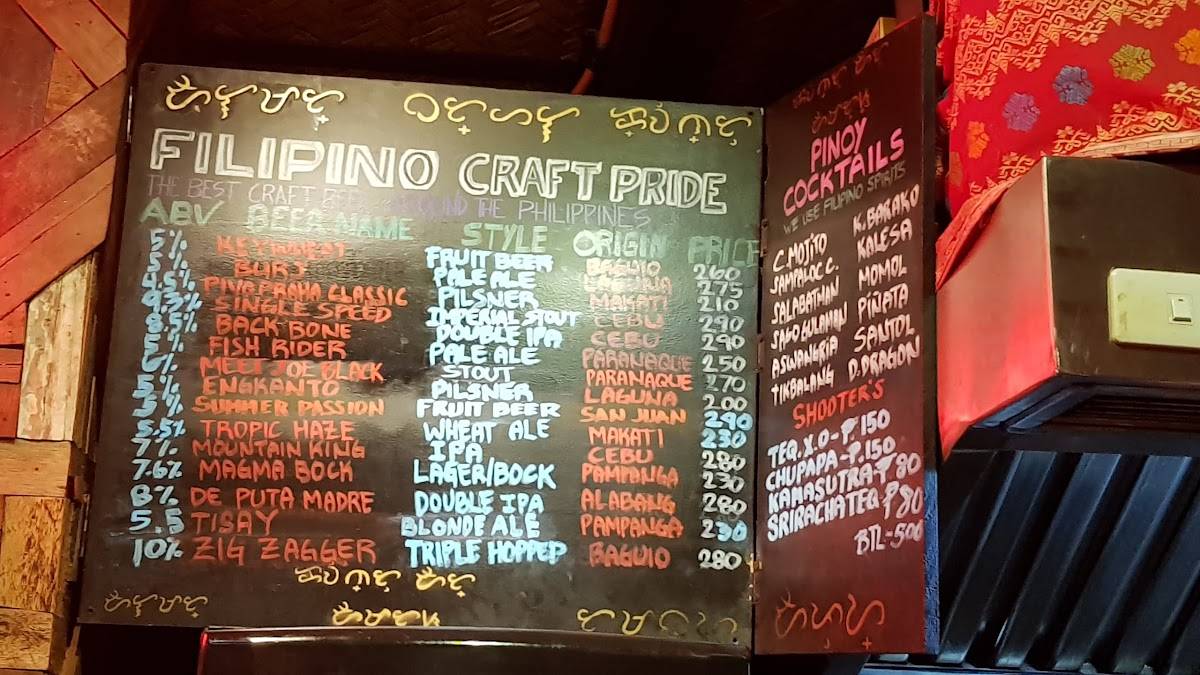 FILIPINO CRAFT PRIDE
THE BEST CRAFT BEER AROUND THE PHILIPPINES
ABV BEER NAME STYLE ORIGIN PRICE
5% FRUIT BEER BAGUIO 260
5% BURJ PALE ALE LAGUNA 275
4.5% PIVA PRAHA CLASSIC PILSNER MAKATI 210
9.3% SINGLE SPEED IMPERIAL STOUT CEBU 290
8.5% BACK BONE DOUBLE IPA CEBU 290
5% FISH RIDER PALE ALE PARANAQUE 250
6% MEET JOE BLACK STOUT PARANAQUE 270
5% ENGKANTO PILSNER LAGUNA 200
5% SUMMER PASSION FRUIT BEER SAN JUAN 290
5.5% TROPIC HAZE WHEAT ALE MAKATI 230
7% MOUNTAIN KING IPA CEBU 280
7.6% MAGMA BOCK LAGER/BOCK PAMPANGA 230
8% DE PUTA MADRE DOUBLE IPA ALABANG 280
5.5 TISAY BLONDE ALE PAMPANGA 230
10% ZIG ZAGGER TRIPLE HOPPED BAGUIO 280
PINOY
COCKTAILS
WE USE FILIPINO SPIRITS
C. MOJITO K. BARAKO
SAMPALOC C. KALESA
SALABATMAN MOMOL
SAGO GULAMAN PIÑATA
ASWANGRIA SANTOL
TIKBALANG D. DRAGON
SHOOTER'S
TEQ. X.O-P.150
CHUPAPA-P.150
KAMASUTRA-P80
SRIRACHA TEQ. P80
BTL-500